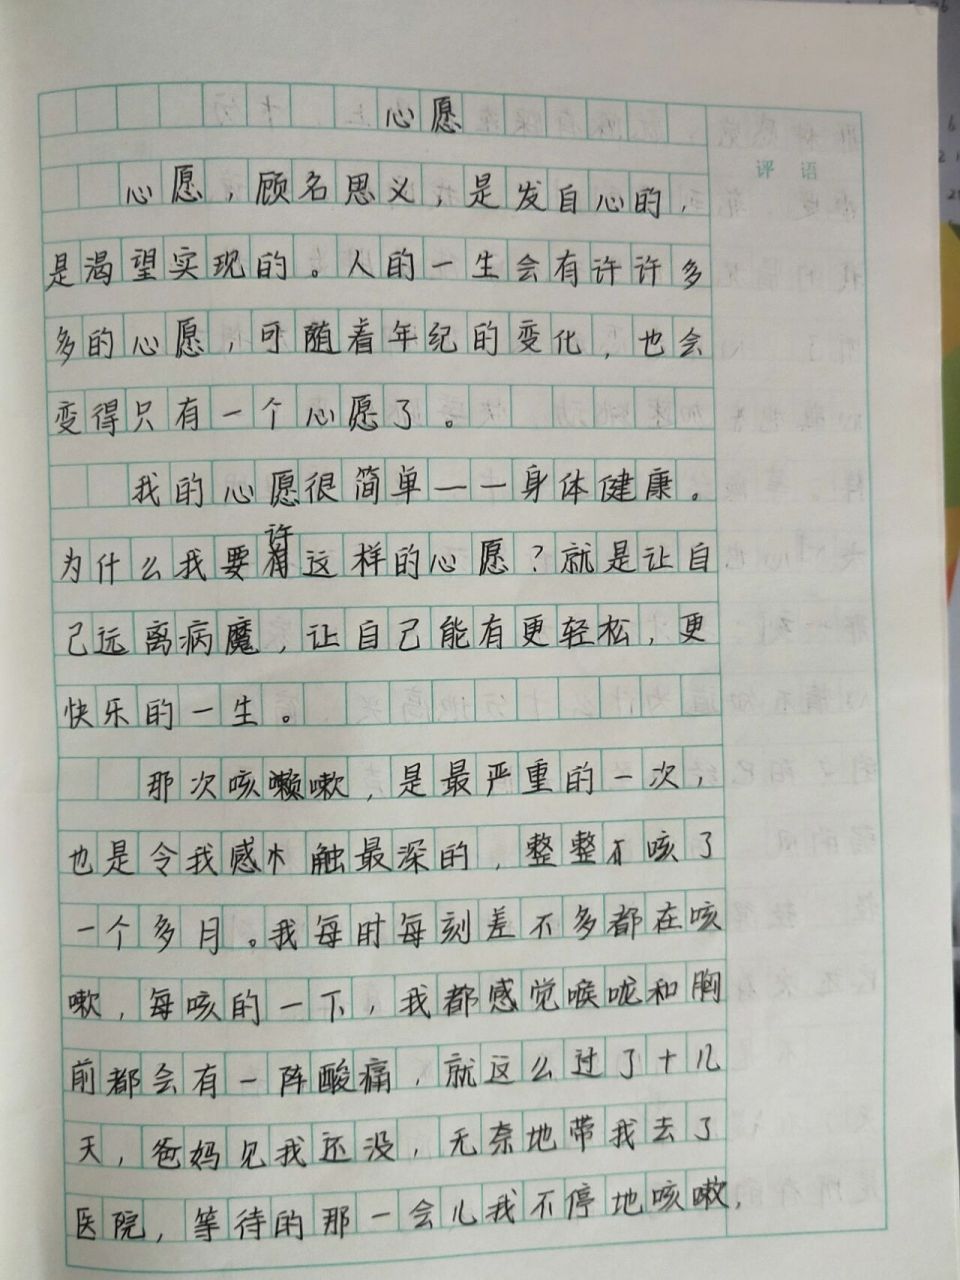 心愿
评语
心愿，顾名思义，是发自心的，
是渴望实现的。人的一生会有许许多
多的心愿，可随着年纪的变化，也会
变得只有一个心愿了。
我的心愿很简单——身体健康。
为什么我要许这样的心愿？就是让自
己远离病魔，让自己能有更轻松，更
快乐的一生。
那次咳嗽，是最严重的一次，
也是令我感触最深的，整整咳了
一个多月。我每时每刻差不多都在咳
嗽，每咳的一下，我都感觉喉咙和胸
前都会有一阵酸痛，就这么过了十几
天，爸妈见我还没，无奈地带我去了
医院，等待的那一会儿我不停地咳嗽，